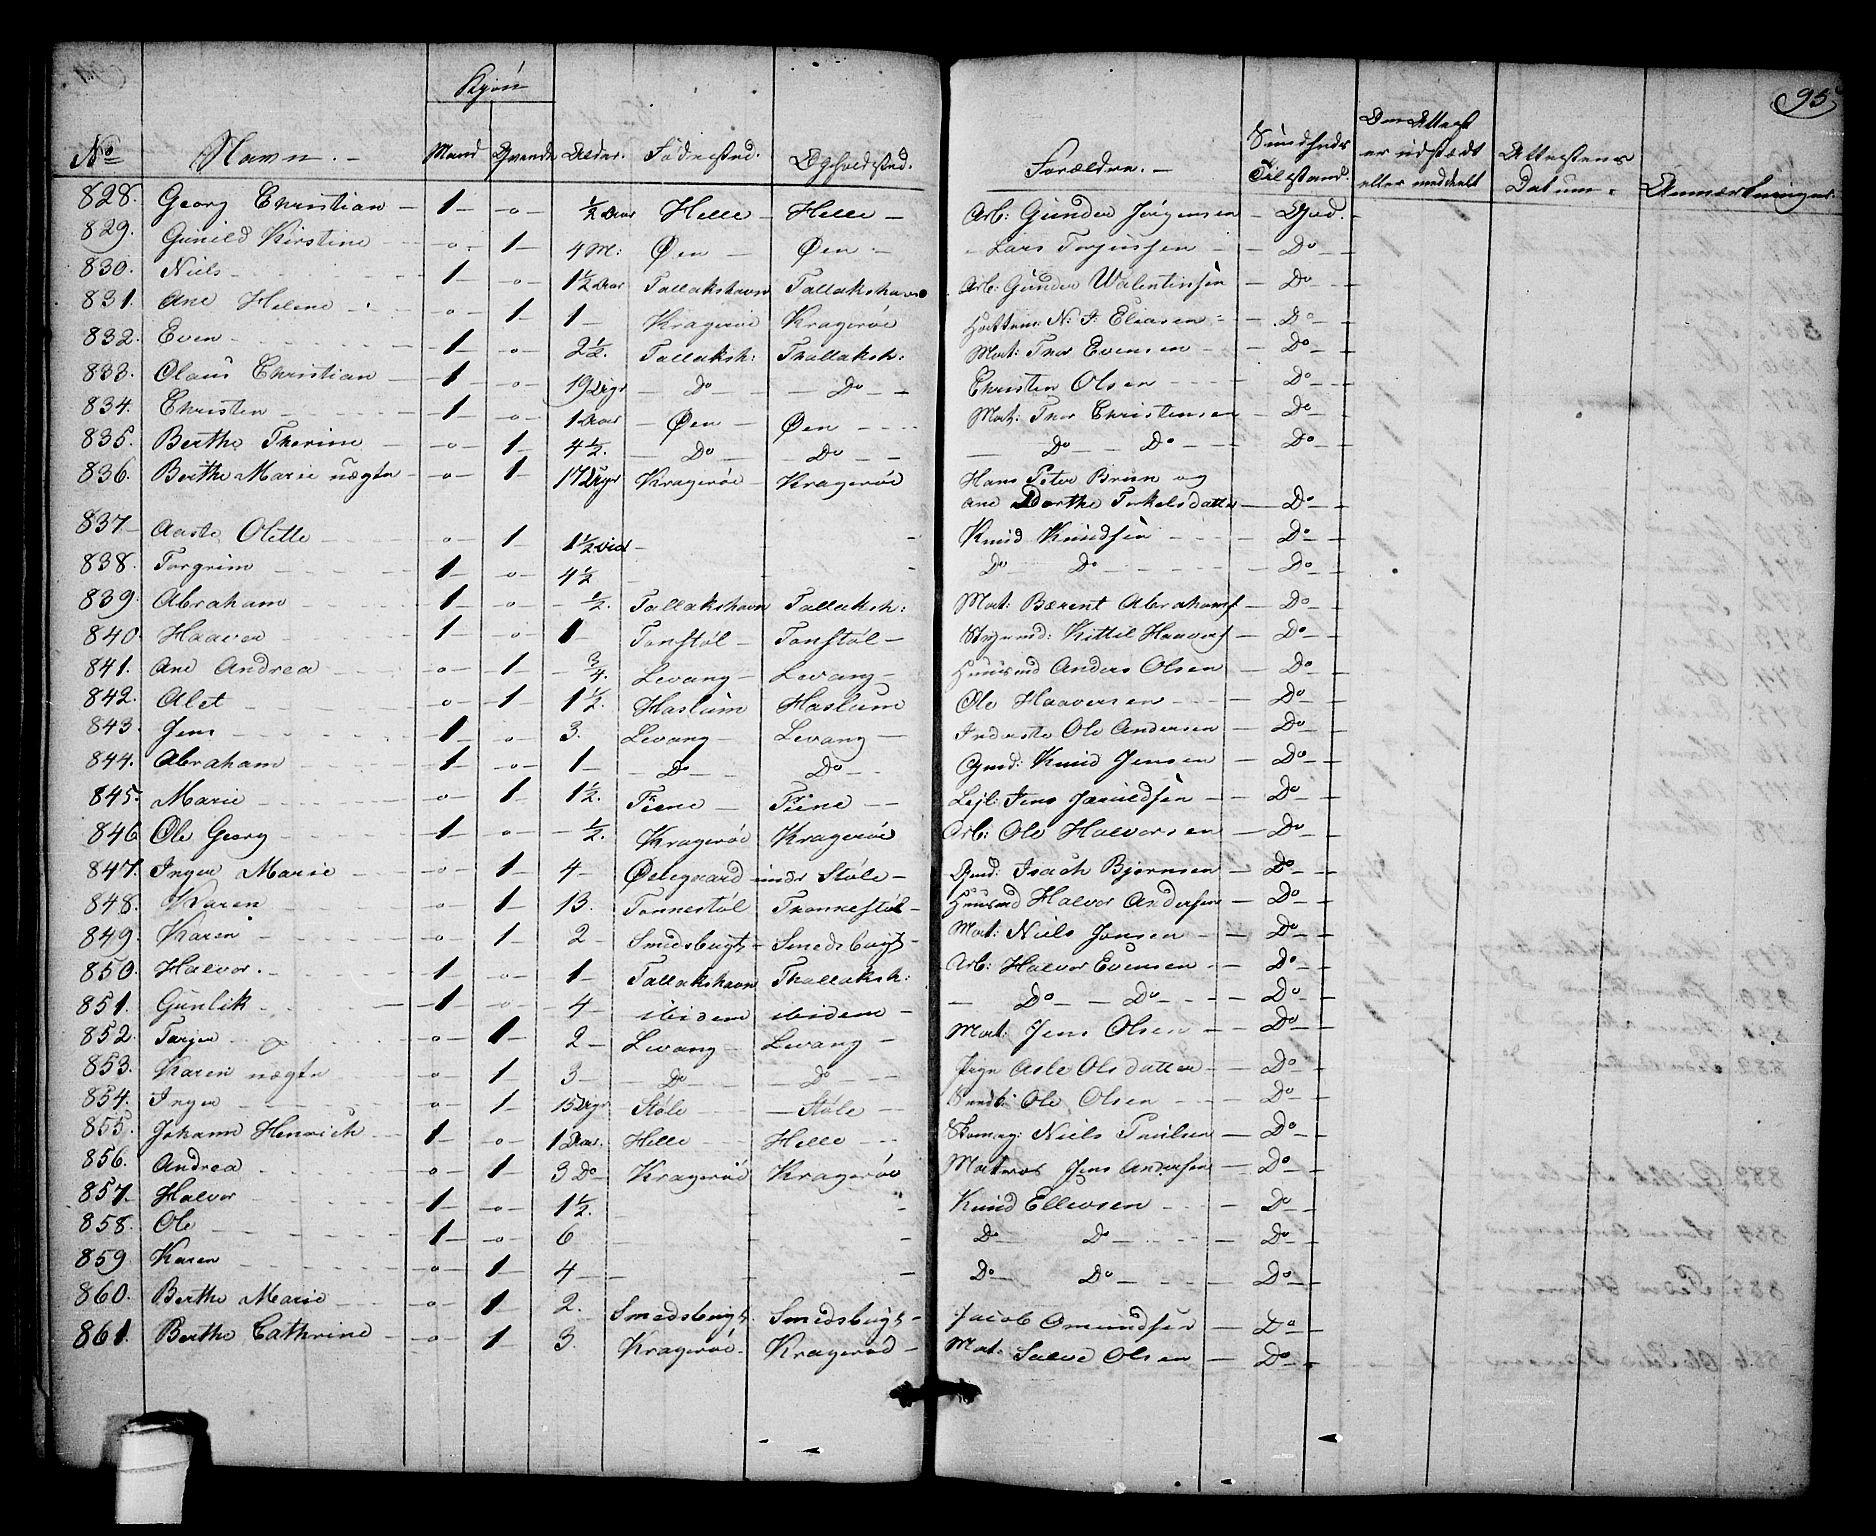 95
Kjön
No Navn. Mand Qvinde Alder. Födested. Opholdsted. Forældre. Sundheds Tilstand. Om Attest er udstædt eller meddeelt Attestens Datum. Anmærkninger.
828. Georg Christian 1 o ½ Aar Helle Helle Arb: Gunder Jörgensen God.
829. Gunild Kirstine o 1 4 M: Øen Øen Lars Torjussen Do
830. Niels 1 o 1½ Aar Tallakshavn Tallakshavn Arb: Gunder Walentinsen Do
831. Ane Helene o 1 1 Krageröe Krageröe N: J: Eliasen Do
832. Even 1 o 2½. Tallaksh: Thallaksh: Mat: Thor Evensen Do
833. Olaus Christian 1 o 19 Dgr Do Do Christen Olsen Do
834. Christen 1 o 1 Aar Øen Øen Mat: Thor Christensen Do
835. Berthe Therine o 1 4½. Do Do Do Do Do
836. Berthe Marie uægte o 1 17 Dgr Krageröe Krageröe Hans Peter Brun og
Ane Dorthe Terkelsdatter Do
837. Aaste Olette o 1 1½ Knud Knudsen Do
838. Torgrim 1 o 4½ Do Do Do
839. Abraham 1 o ½. Tallakshavn Tallaksh: Mat: Bærent Abrahams Do
840. Haavor 1 o 1 Tonstöl Tonstöl Kittil Haavors Do
841. Ane Andrea o 1 ¾. Levang Levang Huusmd Anders Olsen Do
842. Alet o 1 1½. Haslum Haslum Ole Haavorsen Do
843. Jens 1 o 3. Levang Levang Inderste Ole Andersen Do
844. Abraham 1 o 1 Do Do Gmd: Knud Jensen Do
845. Marie o 1 1½. Fiene Fiene Lejl: Jens Jarnildsen Do
846 Ole Georg 1 o ½. Krageröe Krageröe Arb: Ole Halvorsen Do
847. Inger Marie o 1 4 Ødegaard under Stöle Gmd: Isach Bjørnsen Do
848. Karen o 1 13. Tonnestöl Thonnestöl Huusmd Halvor Andersen Do
849. Karen o 1 2 Smedsbugt Smedsbugt Mat: Niels Jonsen Do
850. Halvor. 1 o 1 Tallakshavn Thallaksh: Arb: Halvor Evensen Do
851. Gunlik 1 o 4 ibidem ibidem Do Do Do
852. Torjer o 1 2 Levang Levang Mat: Jens Olsen Do
853. Karen uægte o 1 3 Do Do Pige Asle Olsdatter Do
854. Inger o 1 15 Dgr Stöle Stöle Ole Olsen Do
855. Johann Henrich 1 o 1 Aar. Helle Helle Skomag: Niels Paulsen Do
856. Andrea o 1 3 Do Krageröe Krageröe Matros Jens Andersen Do
857. Halvor 1 o 1½. Knud Ellevsen Do
858. Ole 1 o 6 Do Do Do
859 Karen o 1 4 Do Do Do
860. Berthe Marie o 1 2. Smedsbugt Smedsbugt Jacob Omundsen Do
861. Berthe Cathrine o 1 3. Krageröe Kragerö Mat: Salve Olsen Do